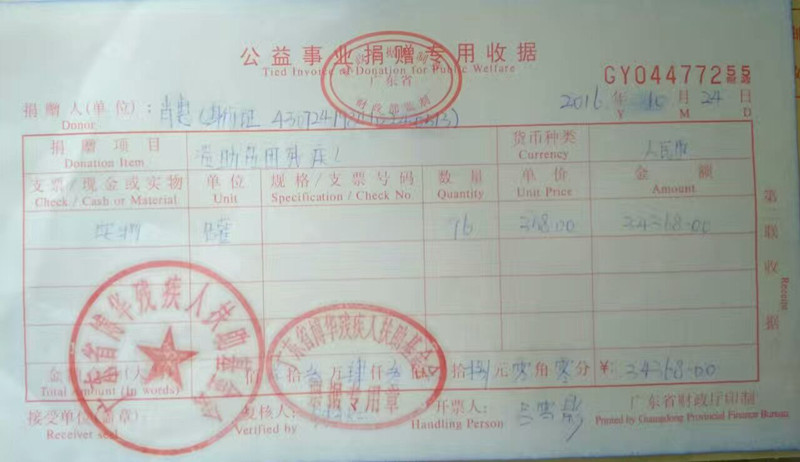 公益事业捐赠专用收据
Tied Invoice of Donation for Public Welfare
广东省
财政部监制
GY04477255
捐赠人(单位):
Donor
2016 年 10 月 24 日
Y M D
捐赠项目
Donation Item
货币种类
Currency
人民币
支票/现金或实物
Check / Cash or Material
单位
Unit
规格/支票号码
Specification / Check No.
数量
Quantity
单价
Unit Price
金额
Amount
实物 罐 96 358.00 34368.00
第 联 收据
Receipt
佰 拾叁万肆仟叁佰 拾捌元零角零分 ¥: 34368.00
Total Amount (In words)
接受单位(盖章):
Receiver seal
复核人:
Verified by
开票人:
Handling Person
广东省财政厅印制
Printed by Guangdong Provincial Finance Bureau
广东省博华残疾人扶助基金会
广东省博华残疾人扶助基金会
票据专用章